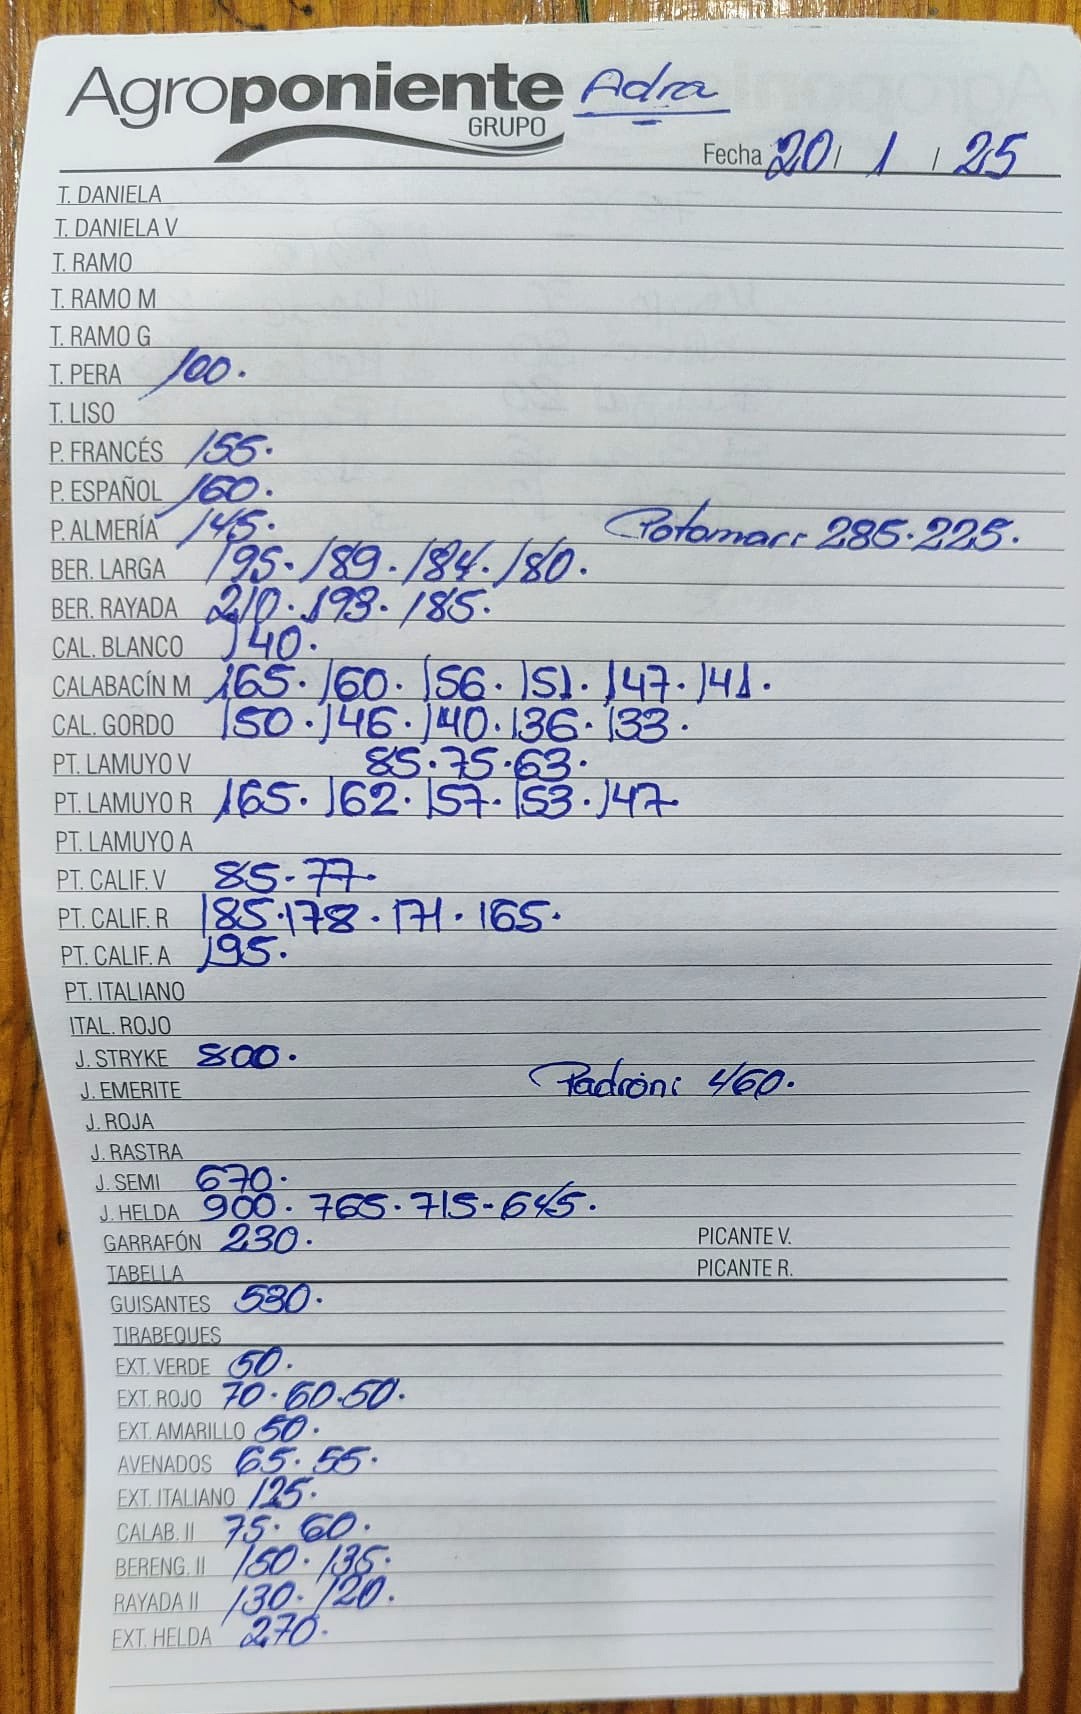 Agroponiente Adra
GRUPO
Fecha 20 / 1 / 25
T. DANIELA
T. DANIELA V
T. RAMO
T. RAMO M
T. RAMO G
T. PERA 100.
T. LISO
P. FRANCÉS 155.
P. ESPAÑOL 160.
P. ALMERÍA 145. Potamar: 285.225.
BER. LARGA 195.189.184.180.
BER. RAYADA 210.193.185.
CAL. BLANCO 140.
CALABACÍN M 165.160.156.151.147.141.
CAL. GORDO 150.146.140.136.133.
PT. LAMUYO V 85.75.63.
PT. LAMUYO R 165.162.157.153.147.
PT. LAMUYO A
PT. CALIF. V 85.77.
PT. CALIF. R 185.178.171.165.
PT. CALIF. A 195.
PT. ITALIANO
ITAL. ROJO
J. STRYKE 800.
J. EMERITE Padrón: 460.
J. ROJA
J. RASTRA
J. SEMI 670.
J. HELDA 900.765.715.645.
GARRAFÓN 230. PICANTE V.
TABELLA PICANTE R.
GUISANTES 530.
TIRABEQUES
EXT. VERDE 50.
EXT. ROJO 70.60.50.
EXT. AMARILLO 50.
AVENADOS 65.55.
EXT. ITALIANO 125.
CALAB. II 75.60.
BERENG. II 150.135.
RAYADA II 130.120.
EXT. HELDA 270.